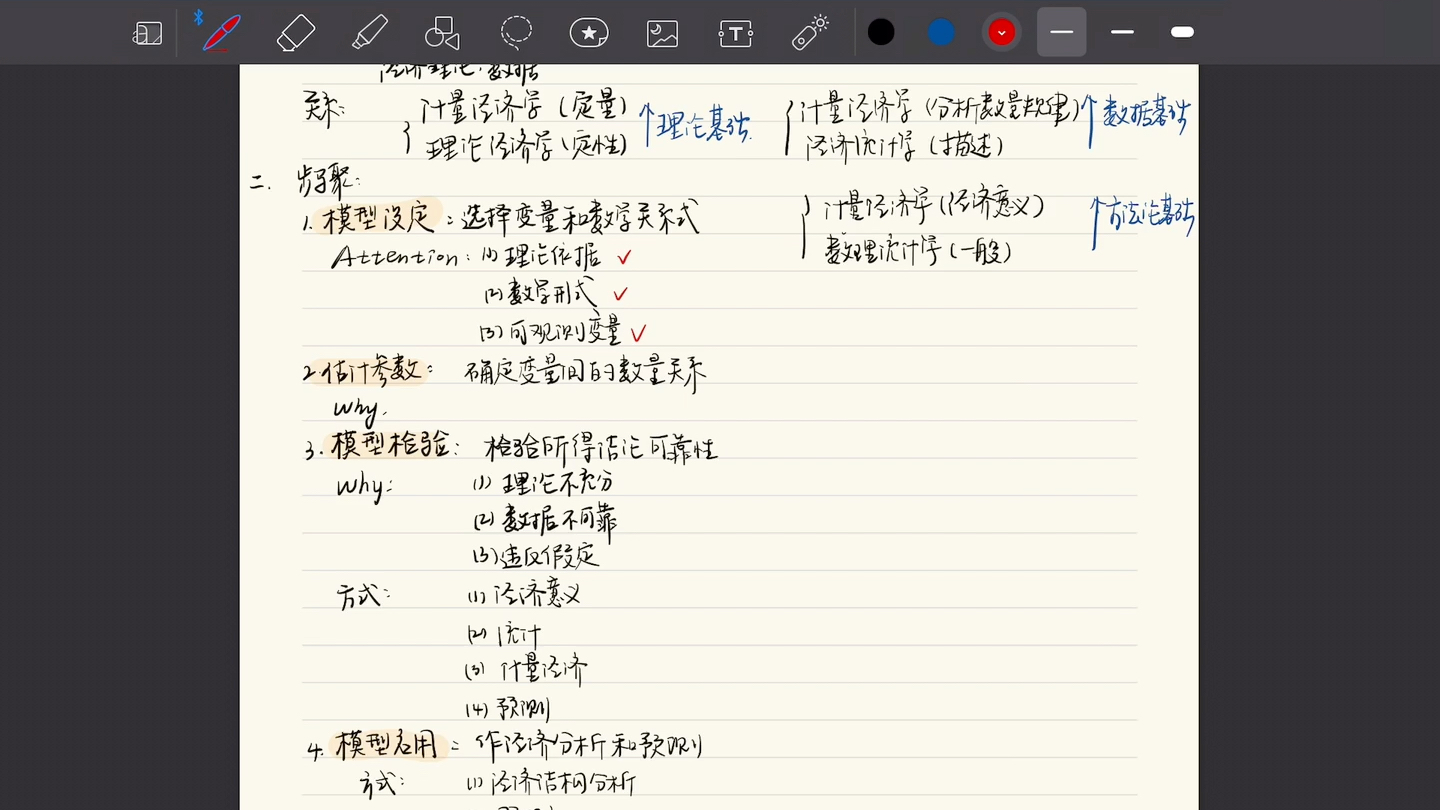 经济理论、数据
关系:
计量经济学 (定量)
理论经济学 (定性)
↑理论基础.
计量经济学 (分析数量规律)
经济统计学 (描述)
↑数据基础
计量经济学 (经济意义)
数理统计学 (一般)
↑方法论基础
二. 步骤:
1. 模型设定: 选择变量和数学关系式
Attention: (1) 理论依据 ✓
(2) 数学形式 ✓
(3) 可观测变量 ✓
2. 估计参数: 确定变量间的数量关系
Why.
3. 模型检验: 检验所得结论可靠性
Why: (1) 理论不充分
(2) 数据不可靠
(3) 违反假定
方式: (1) 经济意义
(2) 统计
(3) 计量经济
(4) 预测
4. 模型应用: 作经济分析和预测
方式: (1) 经济结构分析